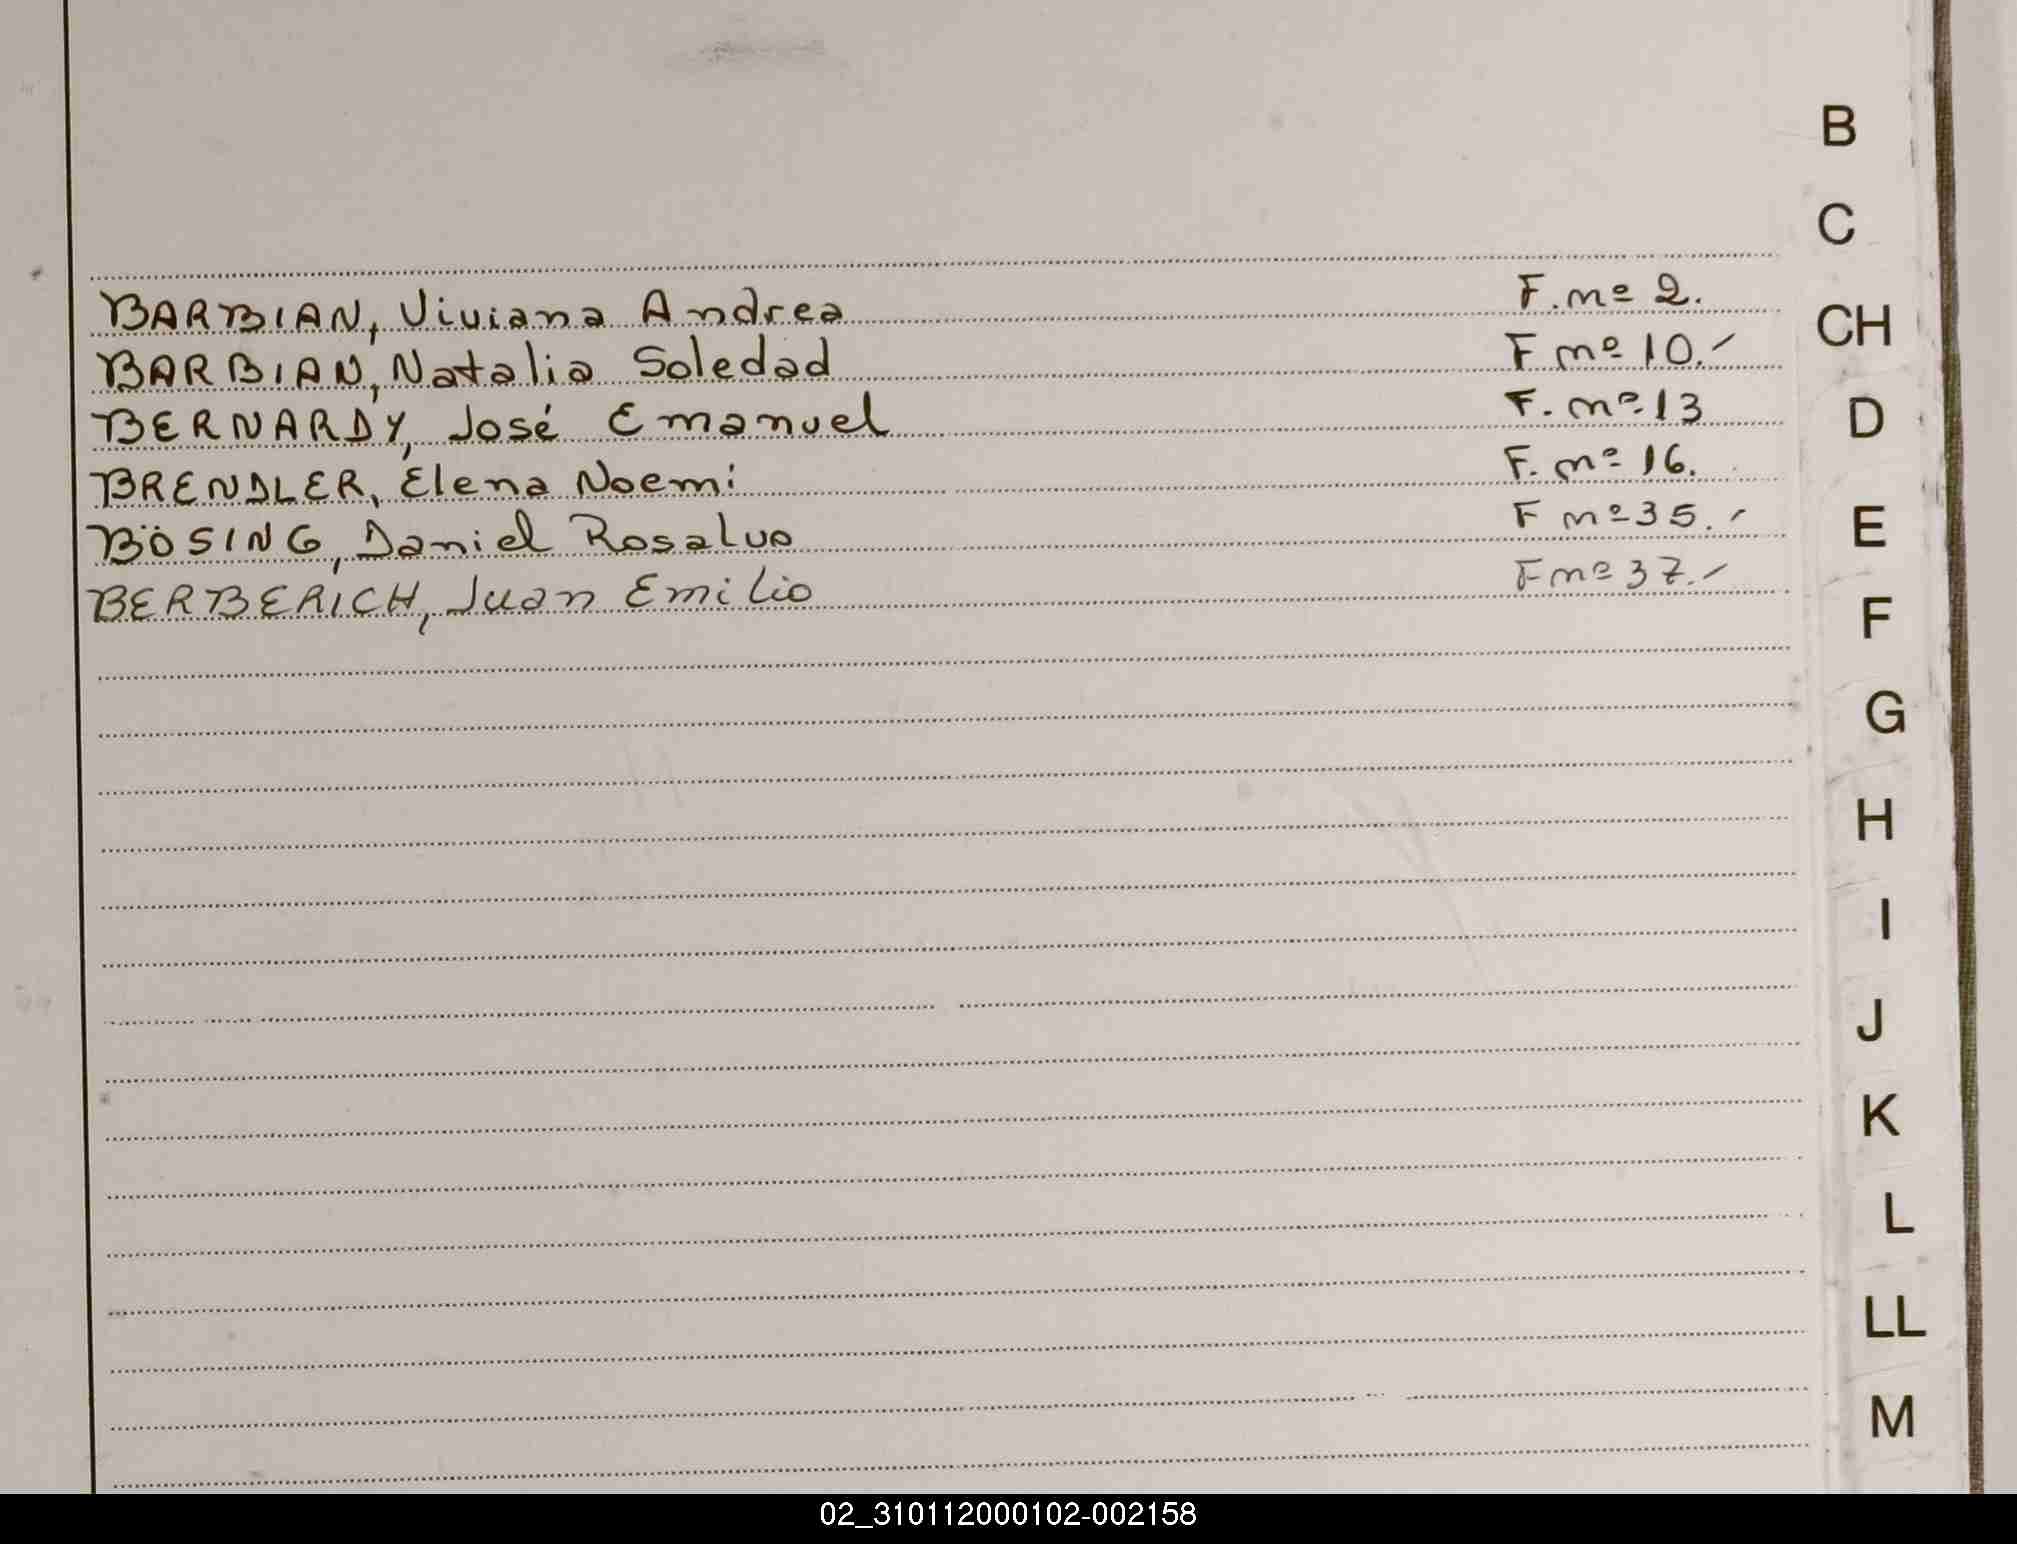 BARBIAN, Viviana Andrea F. nº 2.
BARBIAN, Natalia Soledad F nº 10.-
BERNARDY, José Emanuel F. nº 13
BRENDLER, Elena Noemi F. nº 16.
BÖSING, Daniel Rosalvo F nº 35.-
BERBERICH, Juan Emilio F nº 37.-
B
C
CH
D
E
F
G
H
I
J
K
L
LL
M
02_310112000102-002158